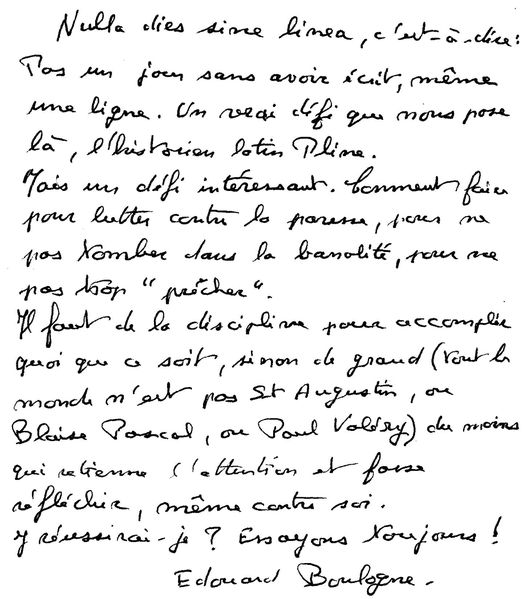 Nulla dies sine linea, c'est-à-dire:
Pas un jour sans avoir écrit, même
une ligne. Un vrai défi que nous pose
là, l'historien latin Pline.
Mais un défi intéressant. Comment faire
pour lutter contre la paresse, pour ne
pas tomber dans la banalité, pour ne
pas trop "prêcher".
Il faut de la discipline pour accomplir
quoi que ce soit, sinon de grand (tout le
monde n'est pas St Augustin, ou
Blaise Pascal, ou Paul Valéry) du moins
qui retienne l'attention et fasse
réfléchir, même contre soi.
Y réussirai-je ? Essayons toujours !
Edouard Boulogne.